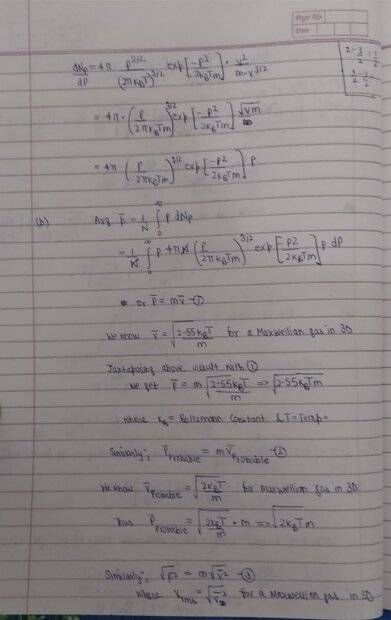 Page No.
Date
2-3/2 = 1/2
dNp/dP = 4π P^3/2/(2πk_BT)^3/2 exp[-P²/2k_BTm] · v²/m·v^3/2
= 4π · (P/2πk_BTm)^3/2 exp[-P²/2k_BTm] √vm
= 4π · (P/2πk_BTm)^3/2 exp[-P²/2k_BTm] P
(b) Avg p̄ = 1/N ∫₀^∞ p dNp
= 1/N ∫₀^∞ p 4πN (P/2πk_BTm)^3/2 exp[-P2/2k_BTm] p dP
or p̄ = mv̄ -①
We know v̄ = √2.55k_BT/m for a Maxwellian gas in 3D
Juxtaposing above result with ①
we get p̄ = m√2.55k_BT/m => √2.55k_BTm
where k_B = Boltzmann Constant & T=Temp=
Similarly; P̄probable = m v̄probable -②
We know v̄probable = √2k_BT/m for Maxwellian gas in 3D
Thus P̄probable = √2k_BT/m * m => √2k_BTm
Similarly; √p̄² = m√v̄² -③
where vrms = √v̄² for a Maxwell gas in 3D